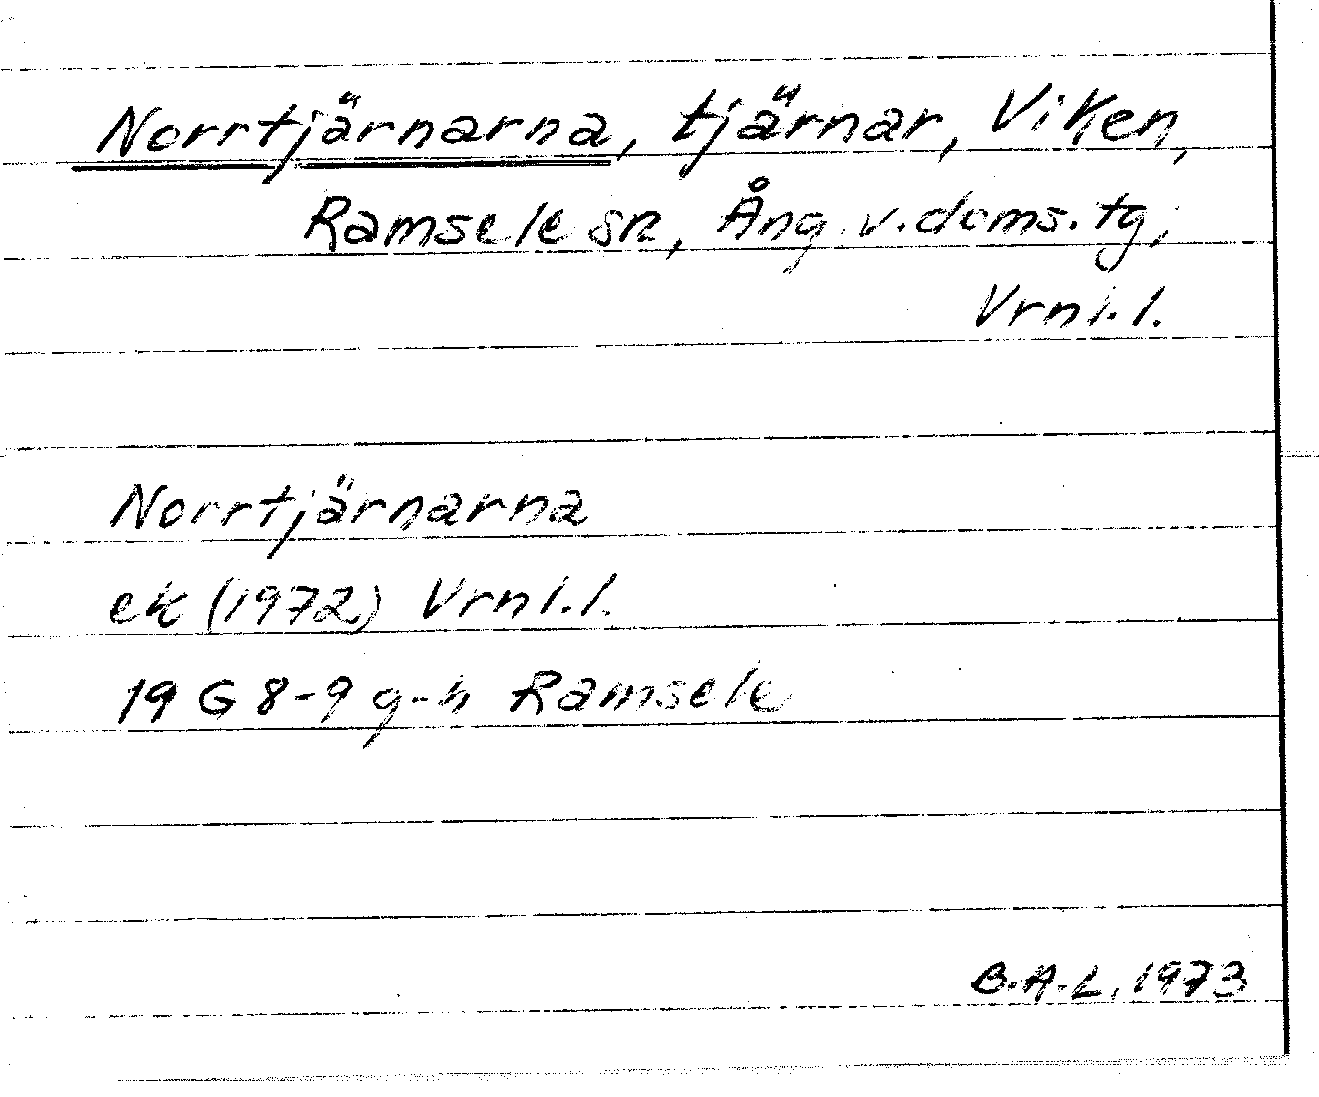 Norrtjärnarna, tjärnar, Viken,
Ramsele sn, Ång. v. doms. tg,
Vrnl. l.
Norrtjärnarna
ek (1972) Vrnl. l.
19 G 8-9 g-h Ramsele
B.A.L. 1973